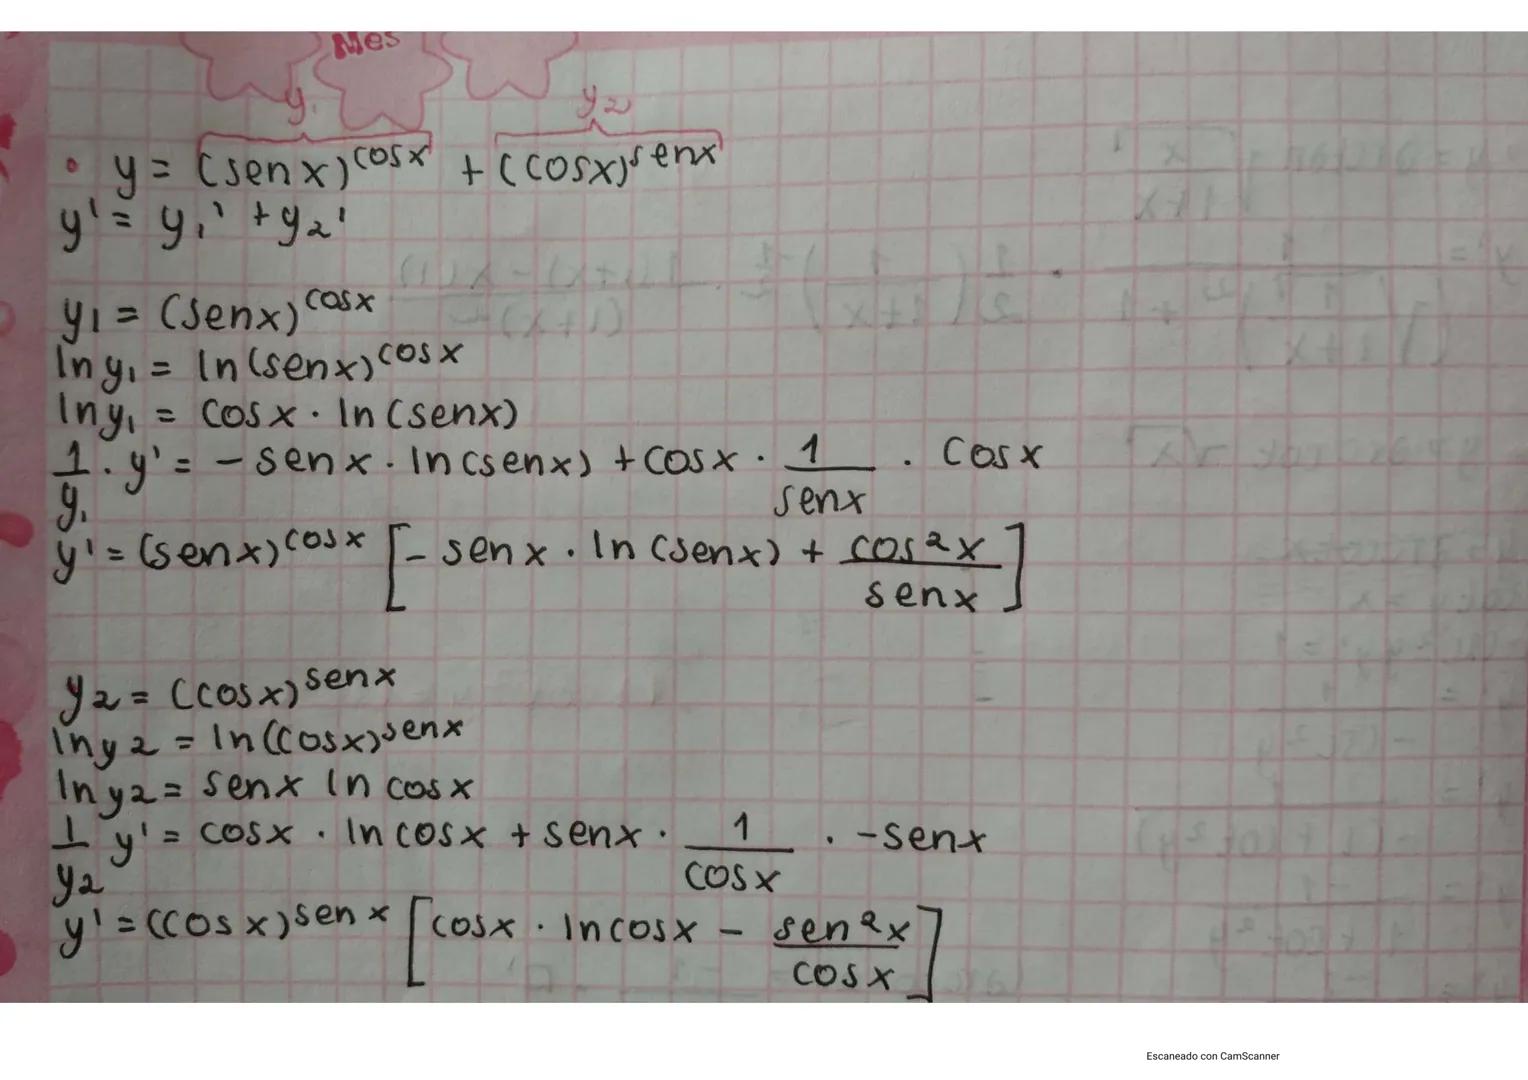 Mes
y₁ y₂
• y = (senx)^cosx + (cosx)^senx
y' = y₁' + y₂'
y₁ = (senx)^cosx
ln y₁ = ln (senx)^cosx
ln y₁ = cosx · ln (senx)
1/y₁ · y' = - senx · ln (senx) + cosx · 1/senx · cosx
y' = (senx)^cosx [- senx · ln (senx) + cos²x/senx]
y2 = (cosx)^senx
ln y2 = ln (cosx)^senx
ln y2 = senx ln cosx
1/y2 y' = cosx · ln cosx + senx · 1/cosx · -senx
y' = (cosx)^senx [cosx · ln cosx - sen²x/cosx]
Escaneado con CamScanner